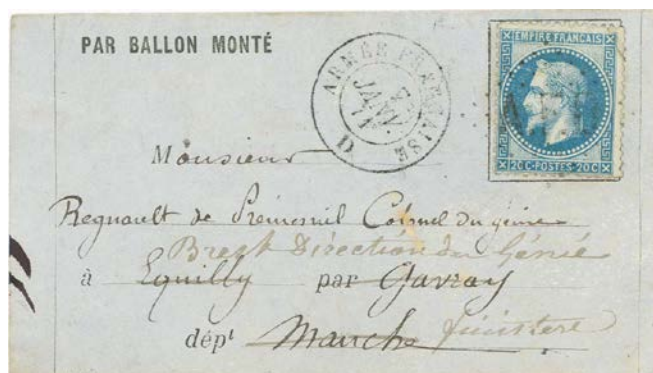 PAR BALLON MONTÉ
ARMÉE FRANÇAISE
JANV.
71
D
EMPIRE FRANÇAIS
20C-POSTES-20C
Monsieur
Regnault de Prémesnil Colonel du génie
Brest Direction du Génie
à Equilly par Gavray
dépt Manche finistere